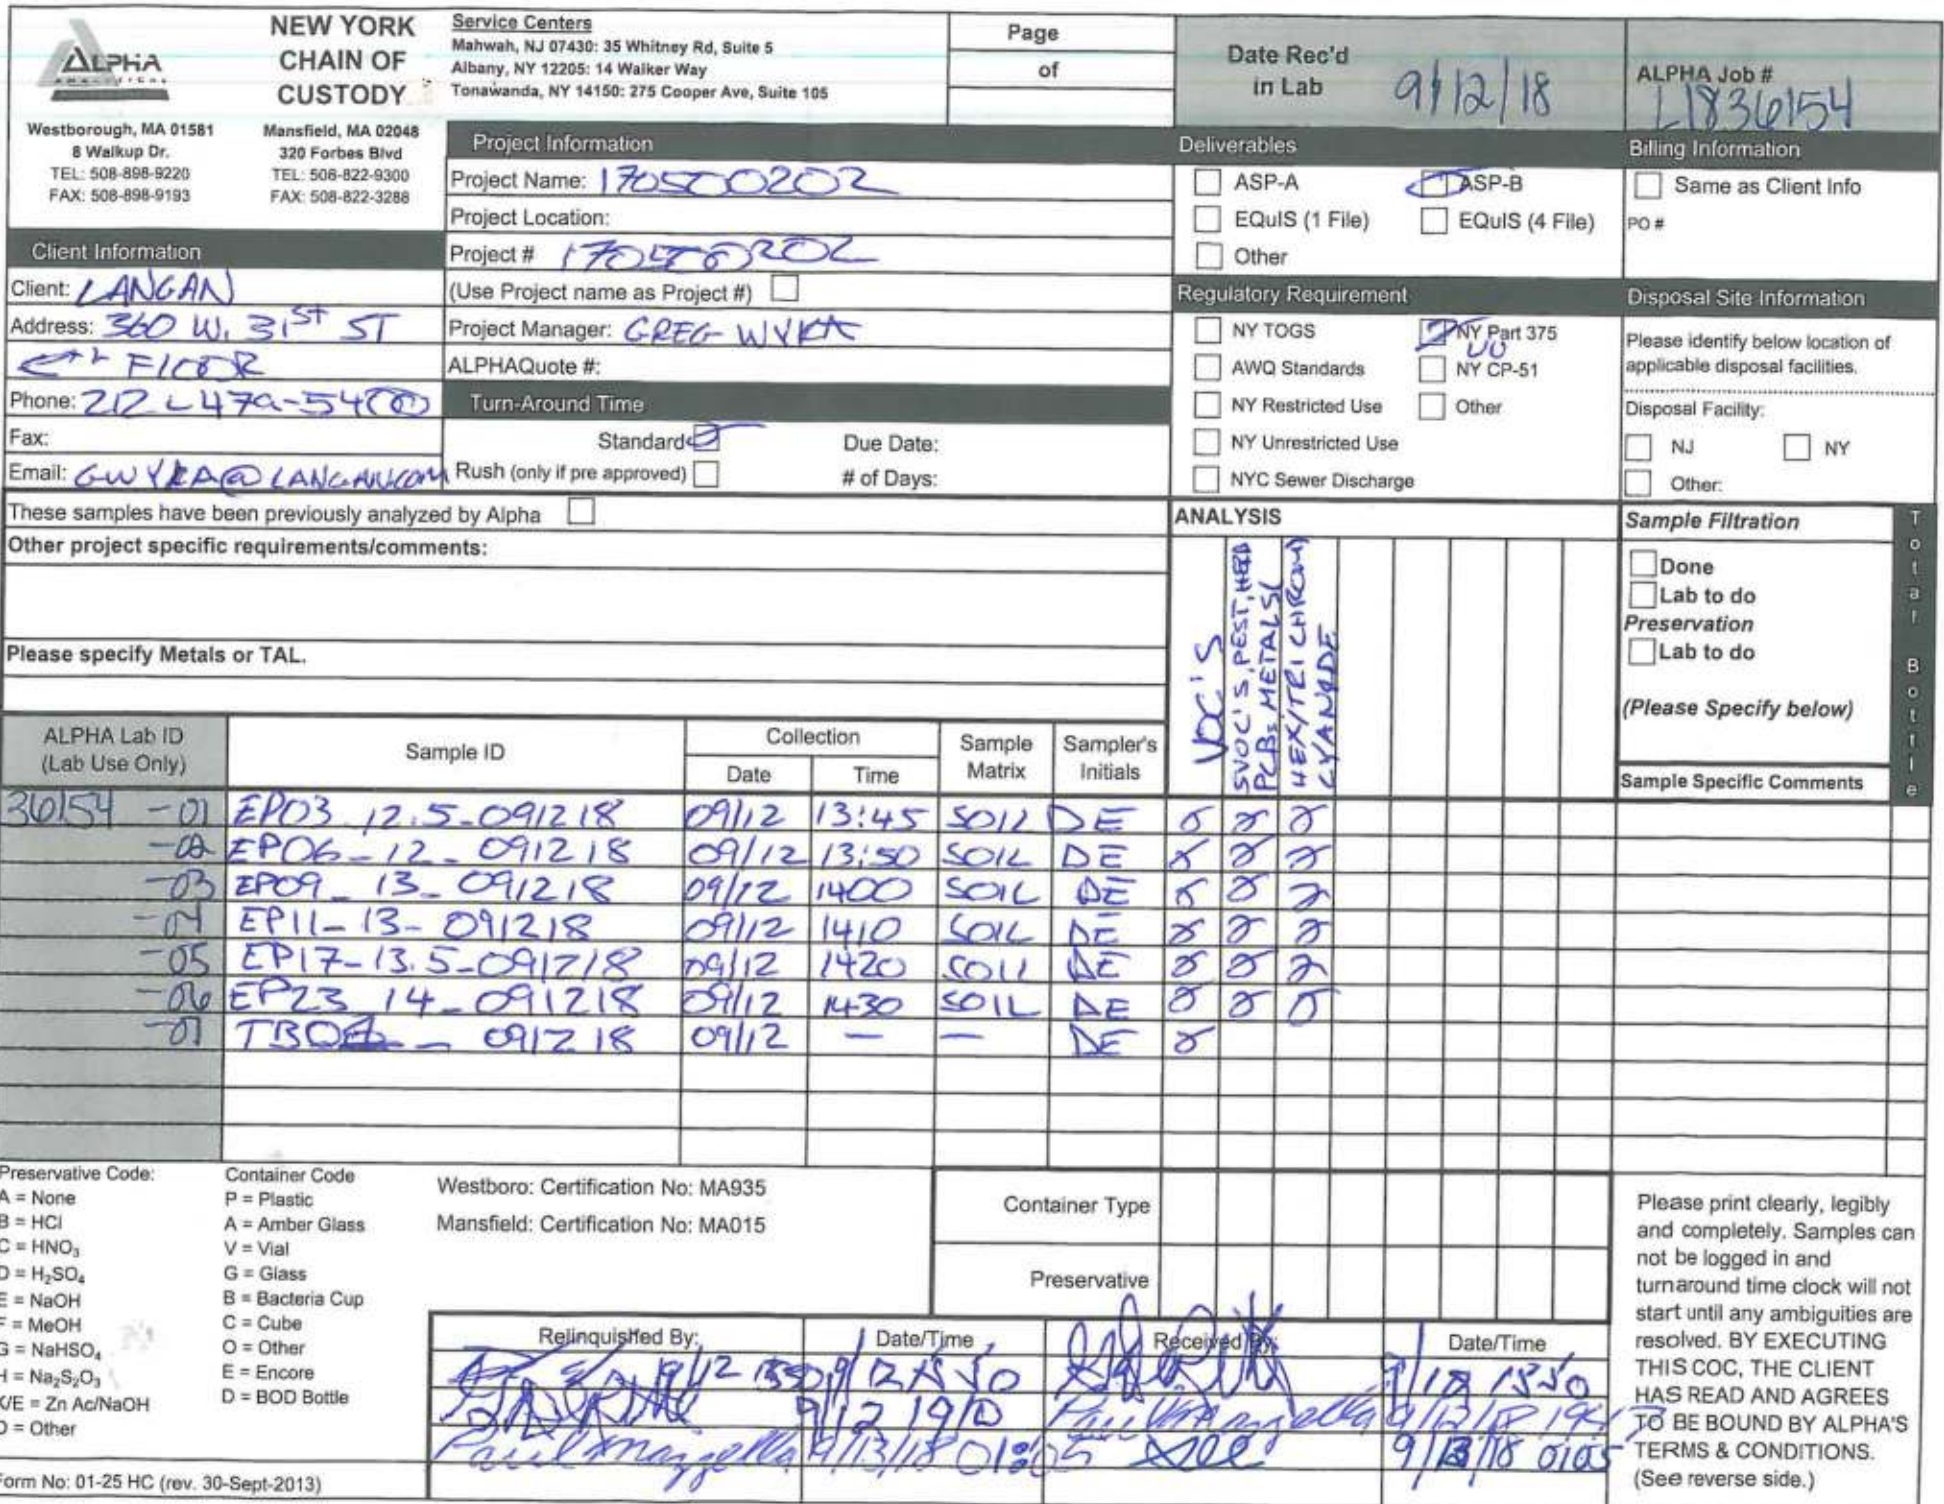 ALPHA
ANALYTICAL
NEW YORK
CHAIN OF
CUSTODY
Westborough, MA 01581
8 Walkup Dr.
TEL: 508-898-9220
FAX: 508-898-9193
Mansfield, MA 02048
320 Forbes Blvd
TEL: 508-822-9300
FAX: 508-822-3288
Service Centers
Mahwah, NJ 07430: 35 Whitney Rd, Suite 5
Albany, NY 12205: 14 Walker Way
Tonawanda, NY 14150: 275 Cooper Ave, Suite 105
Page
of
Date Rec'd
in Lab 9/12/18
ALPHA Job #
L1836154
Client Information
Client: LANGAN
Address: 360 W. 31ST ST
FLOOR
Phone: 212-479-5400
Fax:
Email: GWYKA@LANGAN.COM
Project Information
Project Name: 170500202
Project Location:
Project # 170500202
(Use Project name as Project #)
Project Manager: GREG WYKA
ALPHAQuote #:
Turn-Around Time
Standard Due Date:
Rush (only if pre approved) # of Days:
Deliverables
ASP-A ASP-B
EQuIS (1 File) EQuIS (4 File)
Other
Regulatory Requirement
NY TOGS NY Part 375
UU
AWQ Standards NY CP-51
NY Restricted Use Other
NY Unrestricted Use
NYC Sewer Discharge
Billing Information
Same as Client Info
PO #
Disposal Site Information
Please identify below location of
applicable disposal facilities.
Disposal Facility:
NJ NY
Other:
These samples have been previously analyzed by Alpha
Other project specific requirements/comments:
Please specify Metals or TAL.
ANALYSIS
VOC'S
SVOC'S, PEST, HERB
PCBs METALS
HEX/TRI CHROM
CYANIDE
Sample Filtration
Done
Lab to do
Preservation
Lab to do
(Please Specify below)
Total Bottle
ALPHA Lab ID
(Lab Use Only)
Sample ID
Collection
Date Time
Sample
Matrix
Sampler's
Initials
Sample Specific Comments
36154 -01 EP03_12.5_091218 09/12 13:45 SOIL DE X X X
-02 EP06_12_091218 09/12 13:50 SOIL DE X X X
-03 EP09_13_091218 09/12 1400 SOIL DE X X X
-04 EP11_13_091218 09/12 1410 SOIL DE X X X
-05 EP17_13.5_091218 09/12 1420 SOIL DE X X X
-06 EP23_14_091218 09/12 1430 SOIL DE X X X
-07 091218 09/12 — — DE X
Preservative Code:
A = None
B = HCl
C = HNO3
D = H2SO4
E = NaOH
F = MeOH
G = NaHSO4
H = Na2S2O3
K/E = Zn Ac/NaOH
O = Other
Container Code
P = Plastic
A = Amber Glass
V = Vial
G = Glass
B = Bacteria Cup
C = Cube
O = Other
E = Encore
D = BOD Bottle
Westboro: Certification No: MA935
Mansfield: Certification No: MA015
Container Type
Preservative
Relinquished By: Date/Time Received By: Date/Time
9/12 1550 9/12 1550
9/12 1910 Paul Mazzella 9/12/18
Paul Mazzella 9/13/18 01:05 9/13/18 0105
Please print clearly, legibly
and completely. Samples can
not be logged in and
turnaround time clock will not
start until any ambiguities are
resolved. BY EXECUTING
THIS COC, THE CLIENT
HAS READ AND AGREES
TO BE BOUND BY ALPHA'S
TERMS & CONDITIONS.
(See reverse side.)
Form No: 01-25 HC (rev. 30-Sept-2013)